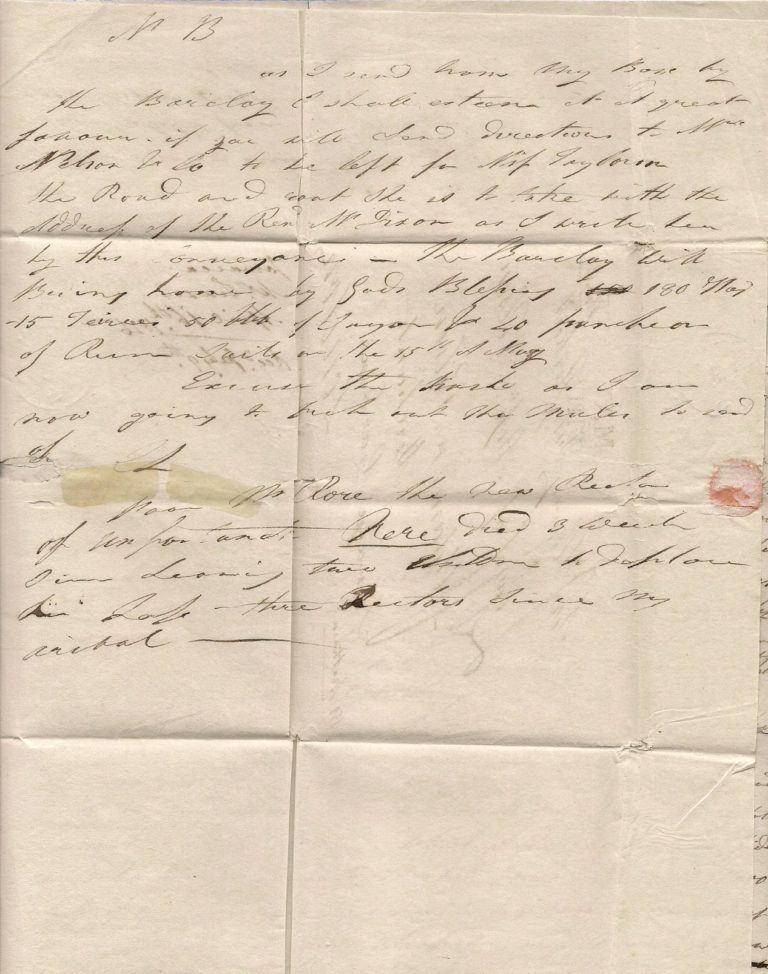 N B
as I send home my Box by
the Barclay I shall esteem it a great
favour if you will send directions to Mess
Nelson & Co to be left for Miss Taylor in
the Road and what she is to take with the
Address of the Revd Mr Dixon as I write her
by this Conveyance – the Barclay will
Bring home by Gods Blessing 180
15 Tierces 50 bbls of Sugar & 40 puncheon
of Rum Sails on the 15th of May
Excuse the haste as I am
now going to the Mules to send
of
poor Mr Rose the new Rector
of died 3 Week
Since Leaving two to deplore
his Loss – three Rectors since my
arival —